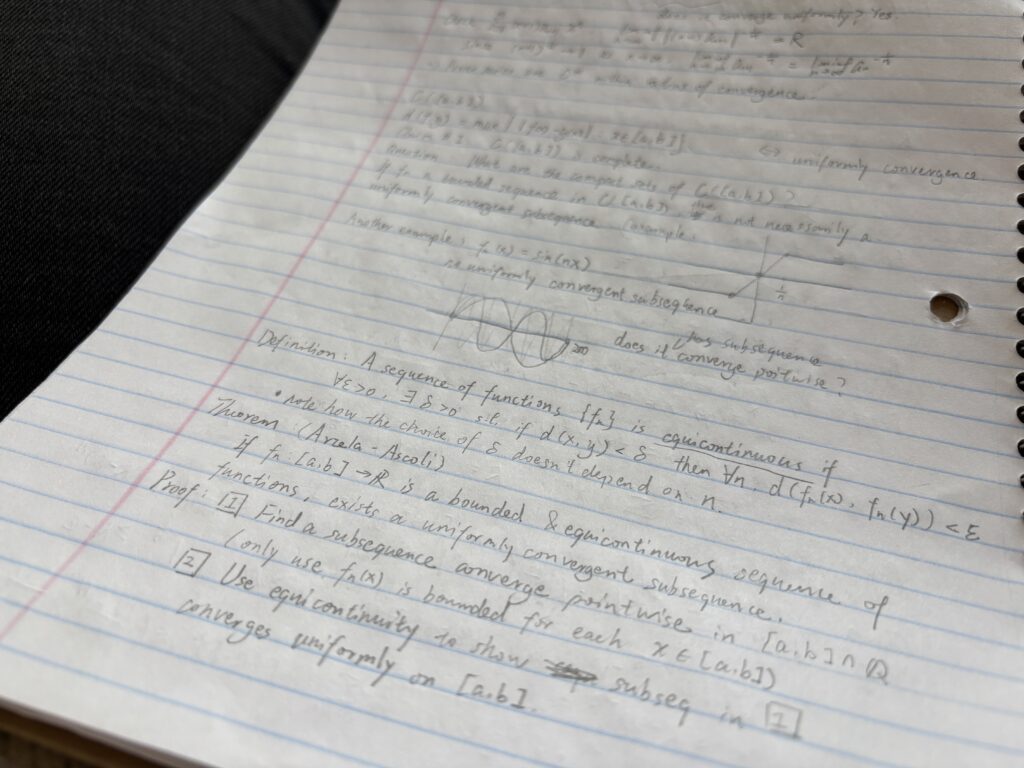 does it converge uniformly? Yes.
= R
=> Power series are C^∞ within radius of convergence.
C([a,b])
d(f,g) = max { |f(x)-g(x)| : x∈[a,b] } <=> uniformly convergence.
C([a,b]) is complete.
Question: What are the compact sets of C([a,b])?
If fn a bounded sequence in C([a,b]), there is not necessarily a
uniformly convergent subsequence. Example.
Another example, fn(x) = sin(nx)
no uniformly convergent subsequence
1/n
has subsequence
does it converge pointwise?
Definition: A sequence of functions {fn} is equicontinuous if
∀ε>0, ∃δ>0 s.t. if d(x,y)<δ then ∀n, d(fn(x), fn(y)) < ε
• note how the choice of δ doesn't depend on n.
Theorem (Arzela-Ascoli)
if fn: [a,b] → R is a bounded & equicontinuous sequence of
functions, exists a uniformly convergent subsequence.
Proof: [1] Find a subsequence converge pointwise in [a,b]∩Q
(only use fn(x) is bounded for each x∈[a,b])
[2] Use equicontinuity to show subseq in [1]
converges uniformly on [a,b].